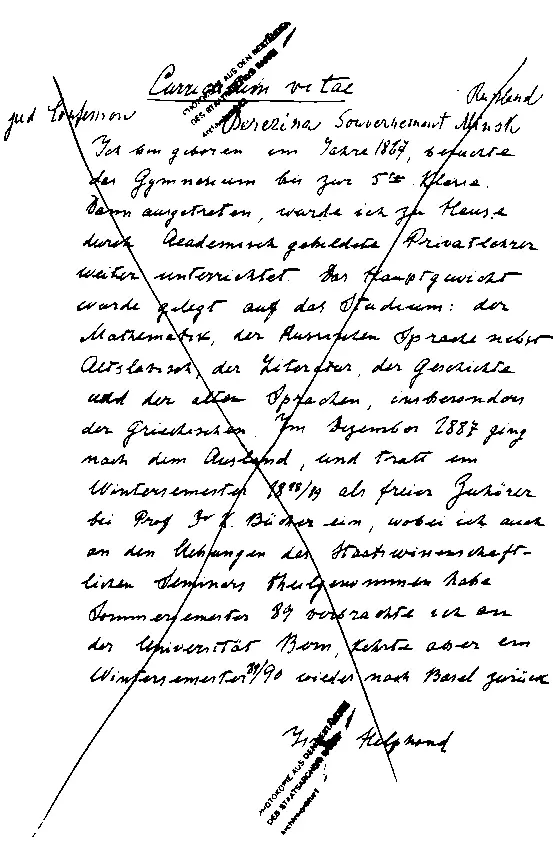 Curriculum vitae
Rußland
jüd Confession
Berezina Gouvernement Minsk
Ich bin geboren im Jahre 1867, besuchte
das Gymnasium bis zur 5ten Klasse.
Dann ausgetreten, wurde ich zu Hause
durch Academisch gebildete Privatlehrer
weiter unterrichtet. Das Hauptgewicht
wurde gelegt auf das Studium: der
Mathematik, der Russischen Sprache nebst
Altslavisch, der Literatur, der Geschichte
und der alten Sprachen, insbesonders
der Griechischen. Im Dezember 1887 ging
nach dem Ausland, und tratt im
Wintersemester 1888/89 als freier Zuhörer
bei Prof Dr K. Bücher ein, wobei ich auch
an den Uebungen des Staatswissenschaft-
lichen Seminars theilgenommen habe
Sommersemester 89 verbrachte ich an
der Universität Bern, kehrte aber im
Wintersemester 89/90 wieder nach Basel zurück
Helphand
PHOTOKOPIE AUS DEN BESTÄNDEN
DES STAATSARCHIVS BASEL
PHOTOKOPIE AUS DEN BESTÄNDEN
DES STAATSARCHIVS BASEL